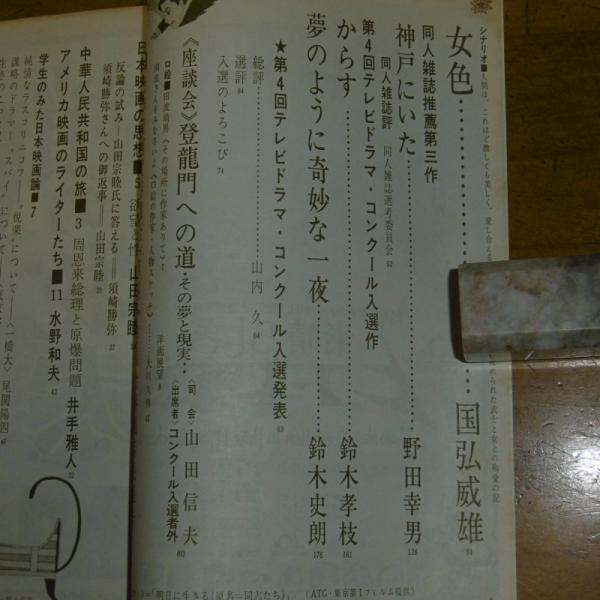 シナリオ■人間は、これほど激しくも美しく、愛し合える
められた武士と女との痴愛の記
女色……………国弘威雄 94
同人雑誌推薦第三作
神戸にいた……………野田幸男 128
同人雑誌評 同人雑誌選考委員会 52
第4回テレビドラマ・コンクール入選作
からす……………鈴木孝枝 161
夢のように奇妙な一夜……………鈴木史朗 176
★第4回テレビドラマ・コンクール入選発表 63
総評……………山内 久 64
選評 64
入選のよろこび 74
《座談会》登龍門への道 その夢と現実‥
〈司 会〉山田信夫
〈出席者〉コンクール入選者外 80
洋画展望 8
日本映画の思想■5 欲望と性 山田宗睦
反論の試み――山田宗睦氏に答える――須崎勝弥 27
須崎勝弥さんへの御返事――山田宗睦
中華人民共和国の旅■3 周恩来総理と原爆問題 井手雅人 32
アメリカ映画のライターたち■11 水野和夫 42
学生のみた日本映画論■7
純情なラスコリニコフ――“悦楽”について――〈一橋大〉尾関陽四
謀略のドラマ――“スパイ”について
「明日に生きる(原名=同志たち)」 (ATG・東京第1フィルム提供)